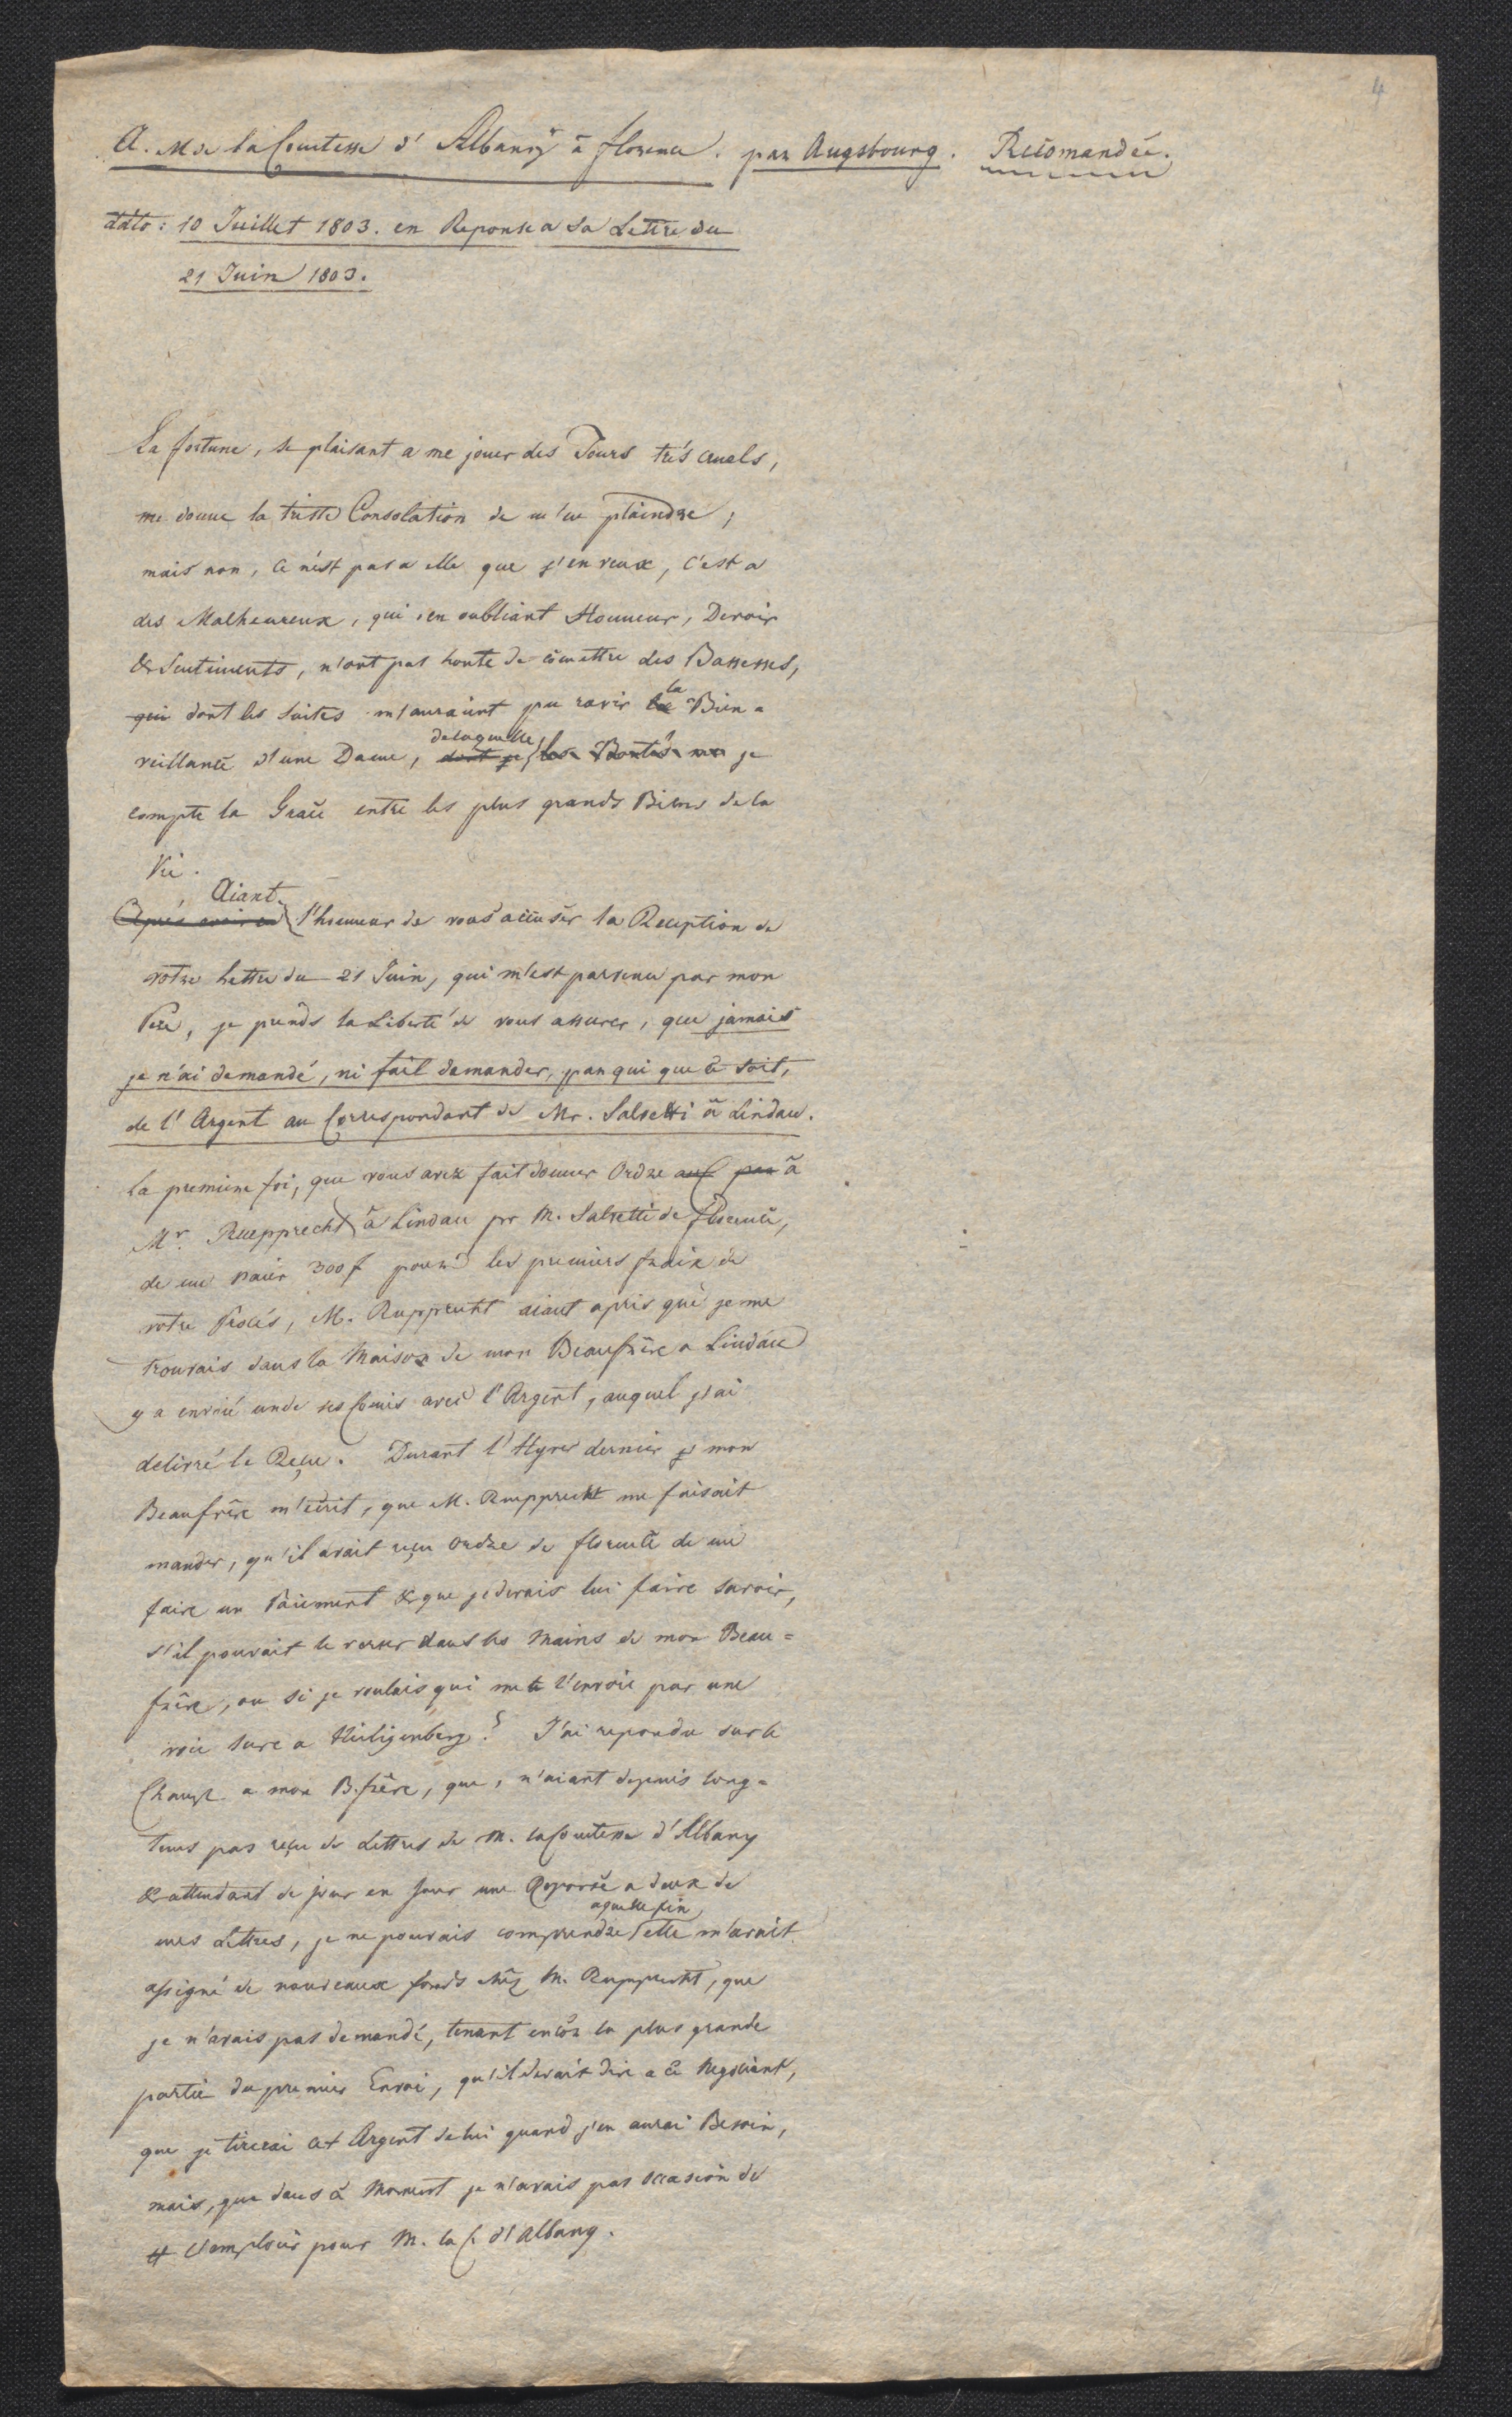 4
A. Me la Comtesse d'Albany à florence. par Augsbourg. Recomandée.
dato: 10 Juillet 1803. en Reponse a sa Lettre du
21 Juin 1803.
La fortune, se plaisant a me jouer des Tours trés cruels,
me donne la triste Consolation de m'en plaindre,
mais non, ce n'est pas a elle que j'en veux, c'est a
des Malheureux, qui, en oubliant Honneur, Devoir
& Sentiments, n'ont pas honte de comettre des Bassesses,
qui dont les Suites m'auraient pu ravir la Bien=
veillance d'une Dame, dont je delaquelle les Bontés me je
compte la Grace entre les plus grands Biens de la
Vie.
Aprés avoir eu Aiant l'honneur de vous accuser la Reception de
votre Lettre du 21 Juin, qui m'est parvenu par mon
Pere, je prends la Liberté de vous assurer, que jamais
je n'ai demandé, ni fait demander, par qui que ce soit,
de l'Argent au Correspondant de Mr. Salvetti à Lindau.
la premiere foi, que vous avez fait donner Ordre à
Mr. Ruepprecht à Lindau pr M. Salvetti de florence,
de me paier 300 f pour les premiers fraix de
votre Procés, M. Rupprecht aiant apris que je me
trouvais dans la Maison de mon Beaufrère a Lindau
y a envoié un de ses Comis avec l'Argent, auquel j'ai
delivré le Reçu. Durant l'Hyver dernier mon
Beaufrère m'ecrit, que M. Rupprecht me faisait
mander, qu'il avait reçu Ordre de florence de me
faire un Paiement & que je devais lui faire savoir,
s'il pouvait le verser dans les Mains de mon Beau=
frère, ou si je voulais qui me l'envoie par une
voie sure a Heiligenberg? J'ai repondu sur le
Champ a mon B.frère, que, n'aiant depuis long=
tems pas reçu de Lettres de M. la Comtesse d'Albany
& attendant de jour en jour une Reponse a deux de
mes Lettres, je ne pouvais comprendre aquelle fin elle m'avait
assigné de nouveaux fonds chéz M. Rupprecht, que
je n'avais pas demandé, tenant encor la plus grande
partie du premier Envoi, qu'il devait dire a ce Negociant,
que je tirerai cet Argent de lui quand j'en aurai Besoin,
mais, que dans ce Moment je n'avais pas occasion de
l'emploier pour M. la C. d'Albany.